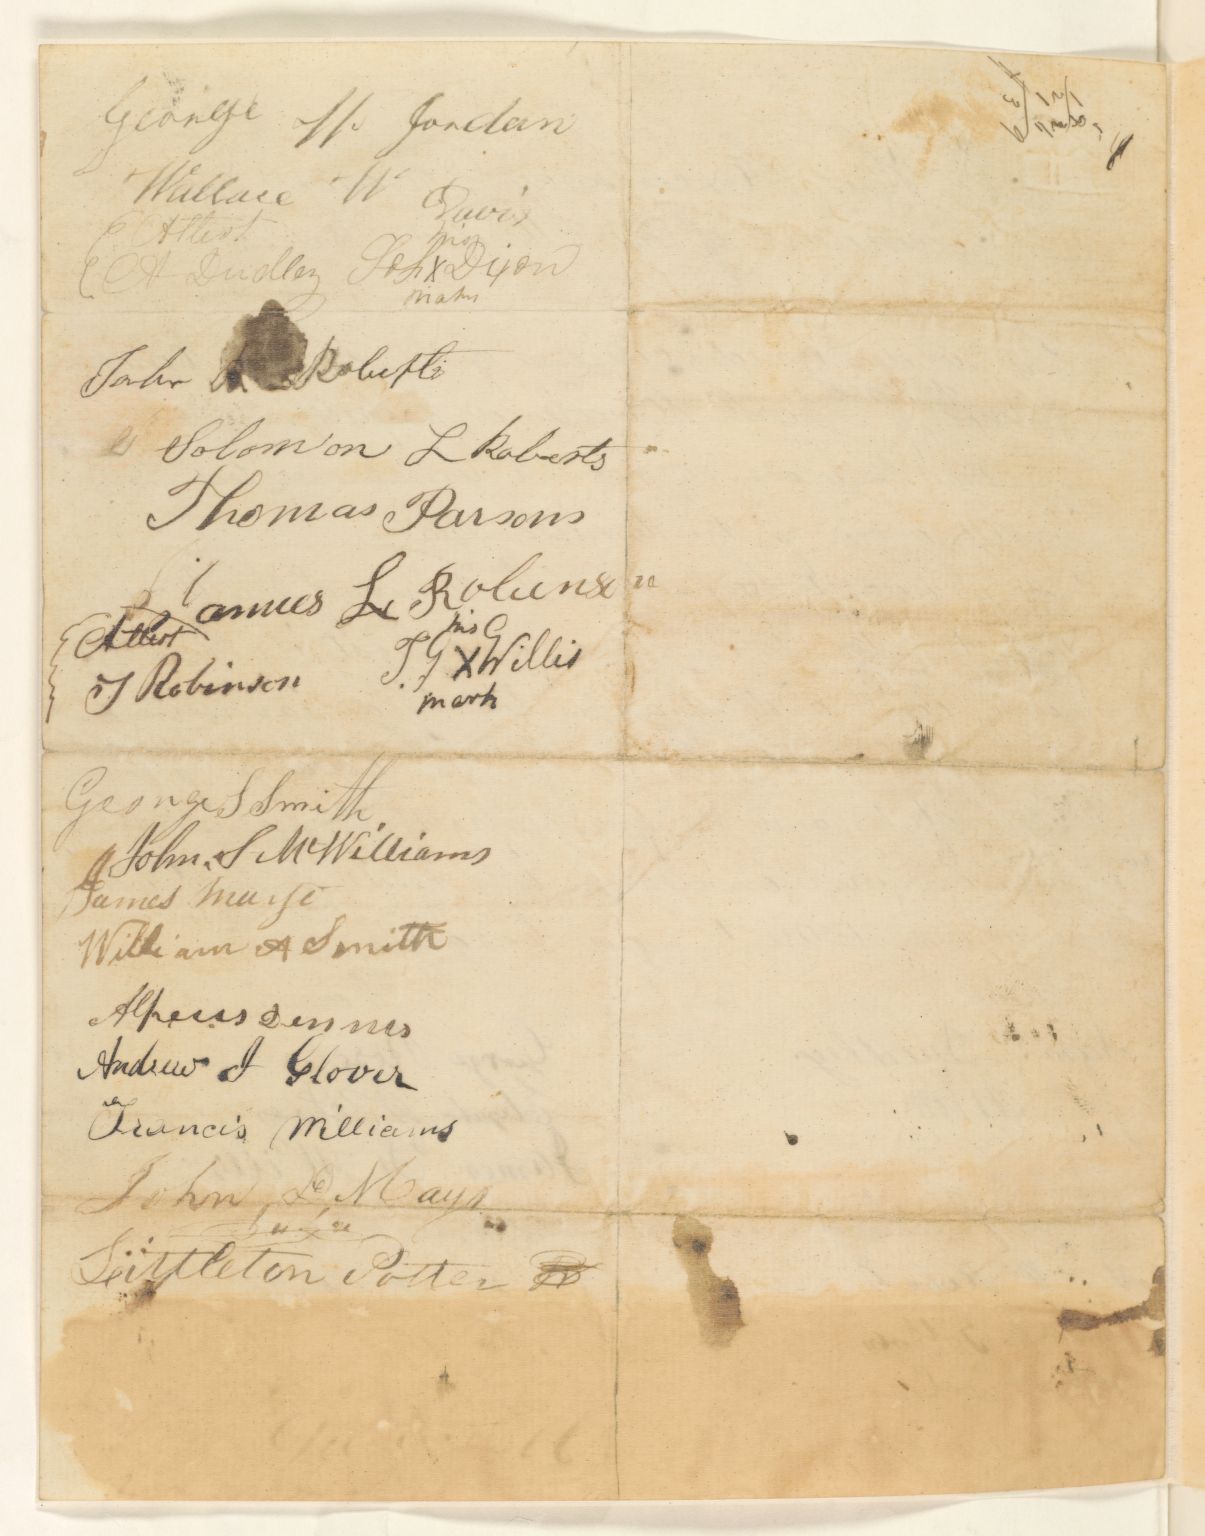 George W. Jordan
Wallace W Davis
Attest his
A Dudley Joh X Dixon
mark
John Roberts
Solomon L Roberts
Thomas Parsons
James L Robinson
Attest his
T Robinson T. G X Willis
mark
George S Smith
John S McWilliams
James
William A Smith
Alpeus
Andrew J Glover
Francis Williams
John D Mays
Littleton Potter